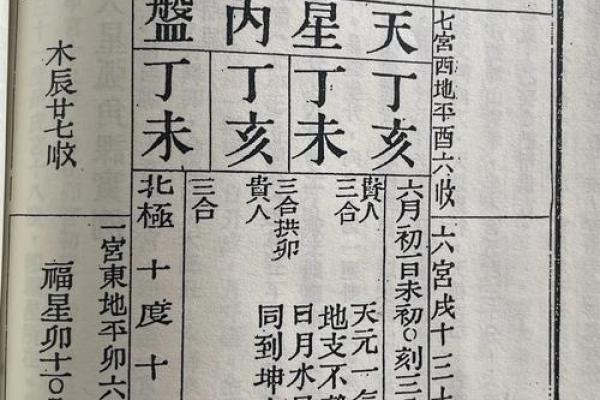 七宮西地平酉六收
六宮戌十三
天星內盤
丁亥
丁未
丁亥
丁未
六月初一日未初○刻三
貴人
三合
三合拱卯
貴人
三合
天元一
地支不
日月水
同到坤
北極十度十
一宮東地平卯六
木辰廿七收
福星卯十○